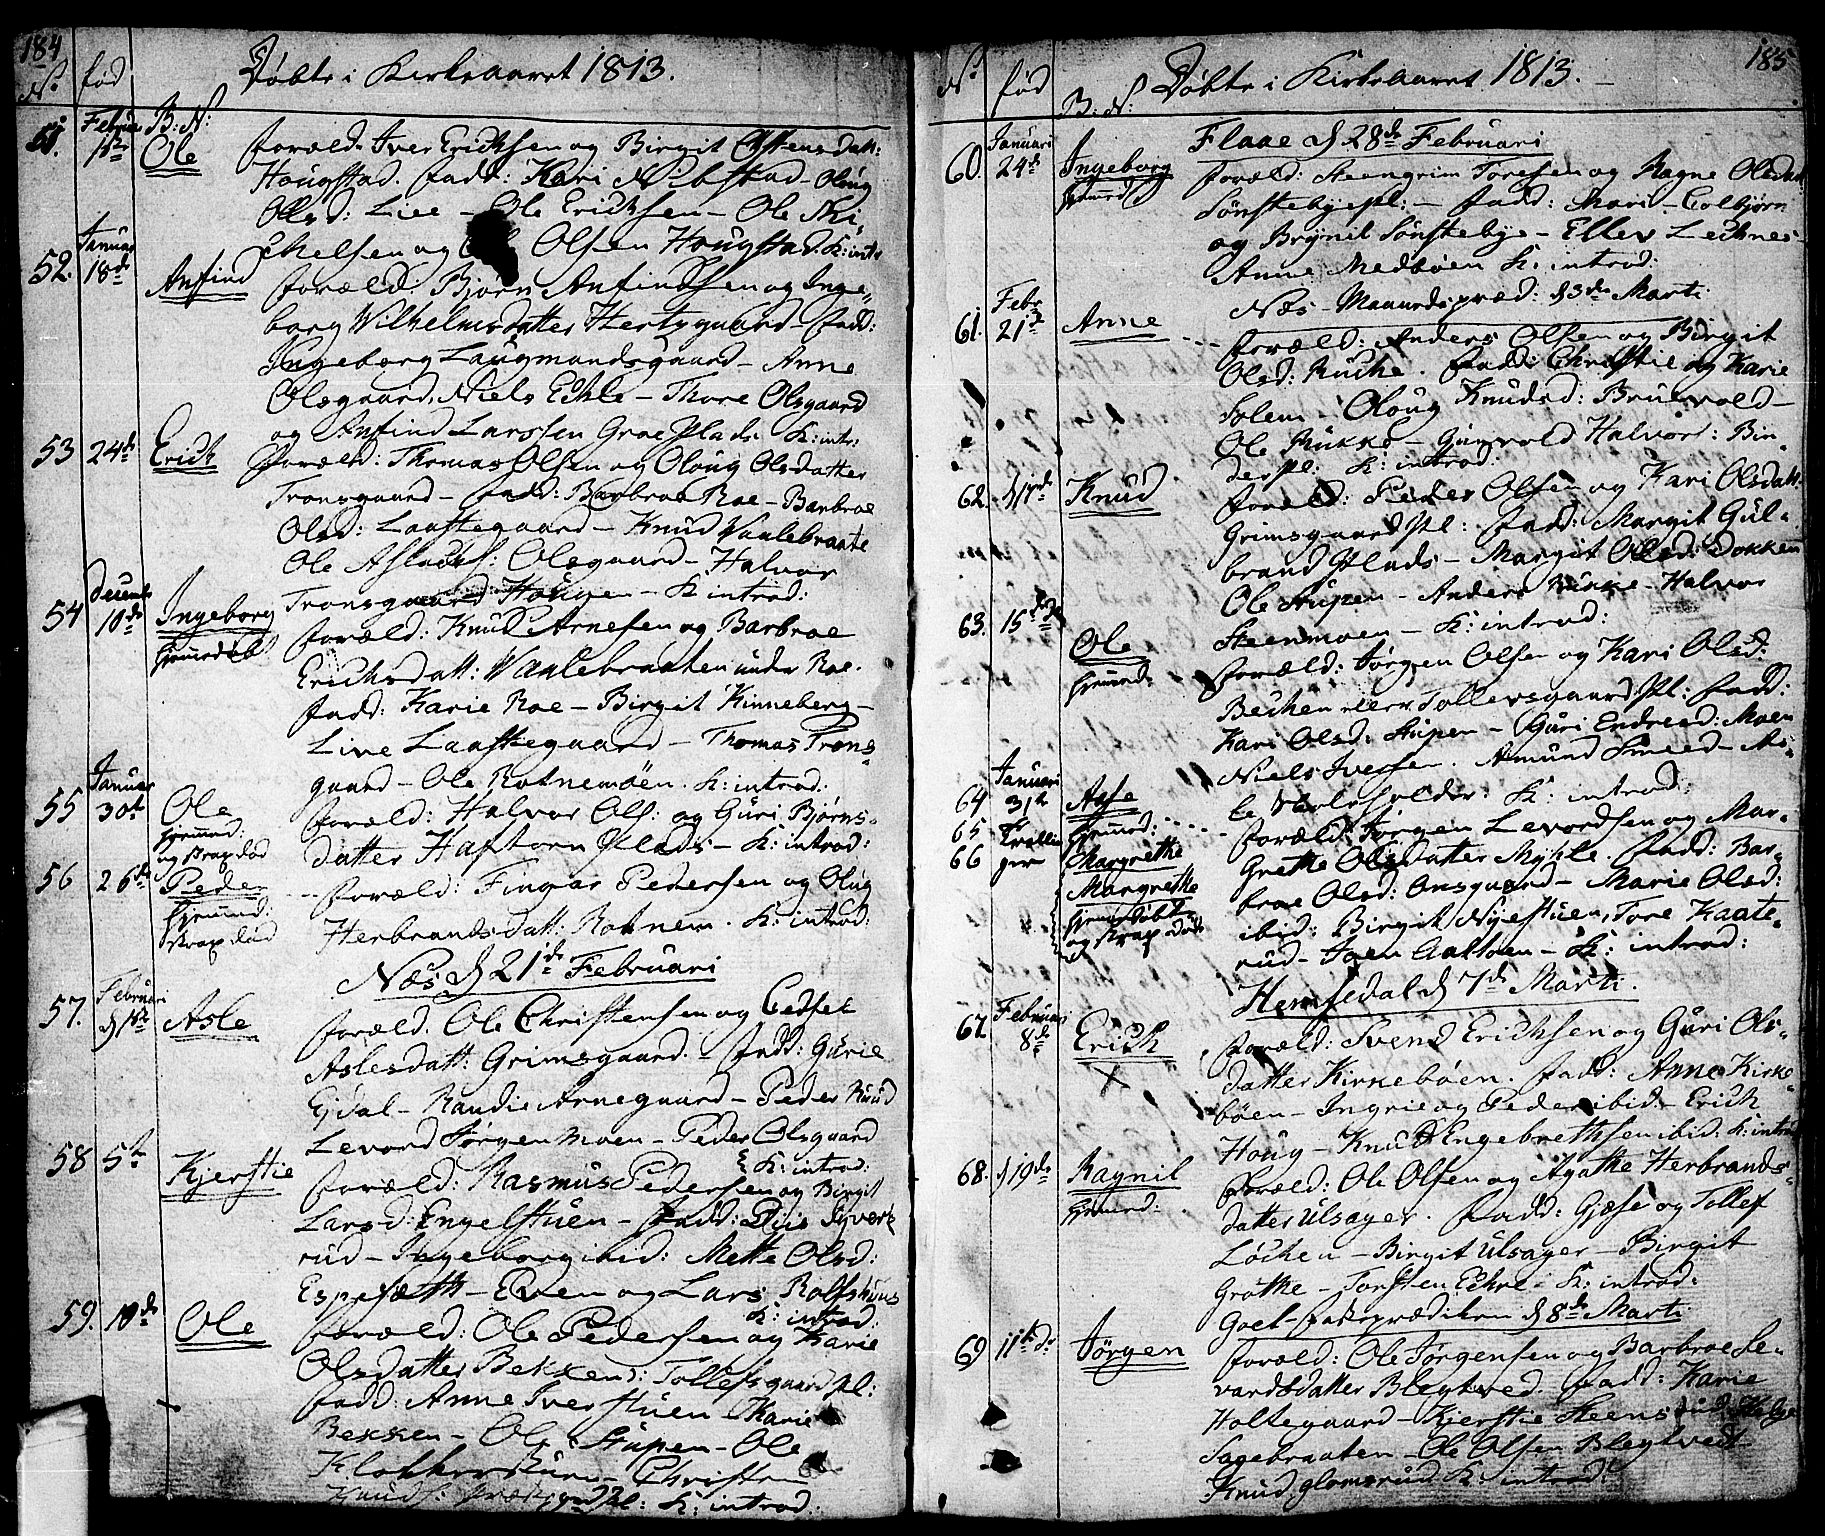 184
Døbte i Kirkeaaret 1813.
No. fød B: N:
51. Februar Ole
Foræld. Iver Erichsen og Birgit Olstensdatt:
Hougstad. Fadd: Kari Nibstad - Oloug
Olsd: Liee - Ole Erichsen - Ole
og Ole Olsen Hougstad. K: intr
52. Januar 18de Anfind
Foræld Bjørn Anfindsen og Inge-
borg Wilhelmsdatter Hertzgaard - Fadd:
Ingeborg Laugmandsgaard - Anne
Olsgaard, Niels Echle - Thore Olsgaard
og Anfind Larssen Groe Plads K: intr:
53 24de Erich
Foræld: Thomas Olsen og Oloug Olsdatter
Tronsgaard - Fadd: Barbroe Roe - Barbroe
Olsd: Laastegaard - Knud Vaalebraate
Ole Aslachs: Olsgaard - Halvor
Tronsgaard Hougen - K: introd:
54 Decemb 10de Ingeborg
hjemmedøbt
Foræld: Knud Arnesen og Barbroe
Erichsdatt: Vaalebraaten under Roe.
Fadd: Karie Roe - Birgit Kinneberg -
Live Laastegaard - Thomas Trons-
gaard - Ole Rotnemöen. K: introd:
55 Januar 30te Ole
hjemmed:
og strax død
Foræld: Halvor Ols: og Guri Bjørns-
datter Haftorn Plads - K: introd:
56 26de Peder
hjemmed:
strax død
Foræld: Fingar Pedersen og Oloug
Herbrandsdatt: Rotnem. K: introd:
Næs d 21de Februari
57. Februari Asle
Foræld. Ole Christensen og Gedsel
Aslesdatt: Grimsgaard. - Fadd: Gurie
Ejdal - Randie Arnegaard - Peder Ruud
Levord Jørgen Moen - Peder Olsgaard
K: introd:
58 5te Kjerstie
Foræld: Rasmus Pedersen og Birgit
Larsd: Engelstuen - Fadd: Syverts
rud - Ingeborg ibid: Mette Olsd:
Espesæth - Even og Lars Rolfshuus
K: introd:
59. 10de Ole
Foræld: Ole Pedersen og Karie
Olsdatter Bekken: Tollefsgaard pl:
Fadd: Anne Iverstuen - Karie
Bekken - Ole Stupen - Ole
Klokkerstuen - Christen
Knuds: pl: K: introd:
185
Døbte i Kirkeaaret 1813. -
No fød B: N:
Flaae d 28de Februari
60. Januari 24de Ingeborg
hjemmed
Foræld: Steengrim Toresen og Ragne Olsdatt
Sønstebyepl: - Fadd: Mari - Colbjørn
og Brynil Sønstebye - Ellev Lechnes -
Anne Medböen K: introd:
Næs - Maanedspræd: d 3de Marti
61. Febr 21de Anne
Foræld: Anders Olsen og Birgit
Olsd: Rukke. Fadd: Christie og Karie
Solem - Oloug Knudsd: Bruvold -
Ole Rukke - Gunvold Halvor: Bin-
derpl: K: introd:
62. d 17de Knud
Foræld: Peder Olsen og Kari Olsdatt-
Grimsgaard Pl: Fadd: Margit Gul-
brand Plads - Margit Olsd: Dokken
Ole Stupen - Anders Rukke - Halvor
Steenmoen - K: introd:
63. 15de Ole
hjemmed:
Foræld: Jørgen Olsen og Kari Olsd:
Bechen Tollevsgaard Pl: Fadd:
Kari Olsd: Stupen - Guri Endresd: Moen
Niels Iversen. Amund Smeed - As-
K: introd:
64 Januari 31te Aase
hjemmed:
65 Trillin Margrethe
66 ger Margrethe
hjemmedøbt
og strax døde
Foræld: Jørgen Levordsen og Mar-
grethe Olsdatter Myhle. Fadd: Bar-
broe Olsd: Onsgaard - Marie Olsd:
ibid: Birgit Nyestuen, Tore Kaate-
rud - Joen - K: introd:
Hemsedal d 7de Marti.
67. Februar 8de Erich
X
Foræld: Svend Erichsen og Guri Ols-
datter Kirkebøen. Fadd: Anne Kirke-
bøen - Ingrie og Peder ibid - Erich
Houg - Knud Engebrethsen ibid: K: introd
68. d 19de Ragnil
hjemmed:
Foræld: Ole Olsen og Agathe Herbrands-
datter Ulsager. Fadd: Gjøse og Tollef
Løchen - Birgit Ulsager - Birgit
Grøthe - Torsten Echre - K: introd:
Goel - Fasteprædiken d 8de Marti
69 11te do Jørgen
Foræld: Ole Jørgensen og Barbroe Le-
vardsdatter Blegtved. Fadd: Karie
Holtegaard - Kjerstie Steensrud, Helge
Sagebraaten - Ole Olsen Blegtvedt
Knud Glomsrud. K: introd: